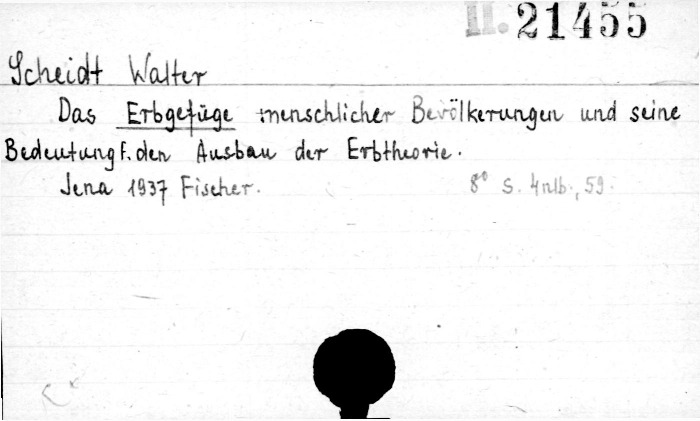 II. 21455
Scheidt Walter
Das Erbgefüge menschlicher Bevölkerungen und seine
Bedeutung f. den Ausbau der Erbtheorie.
Jena 1937 Fischer. 8° S. 4nlb., 59.